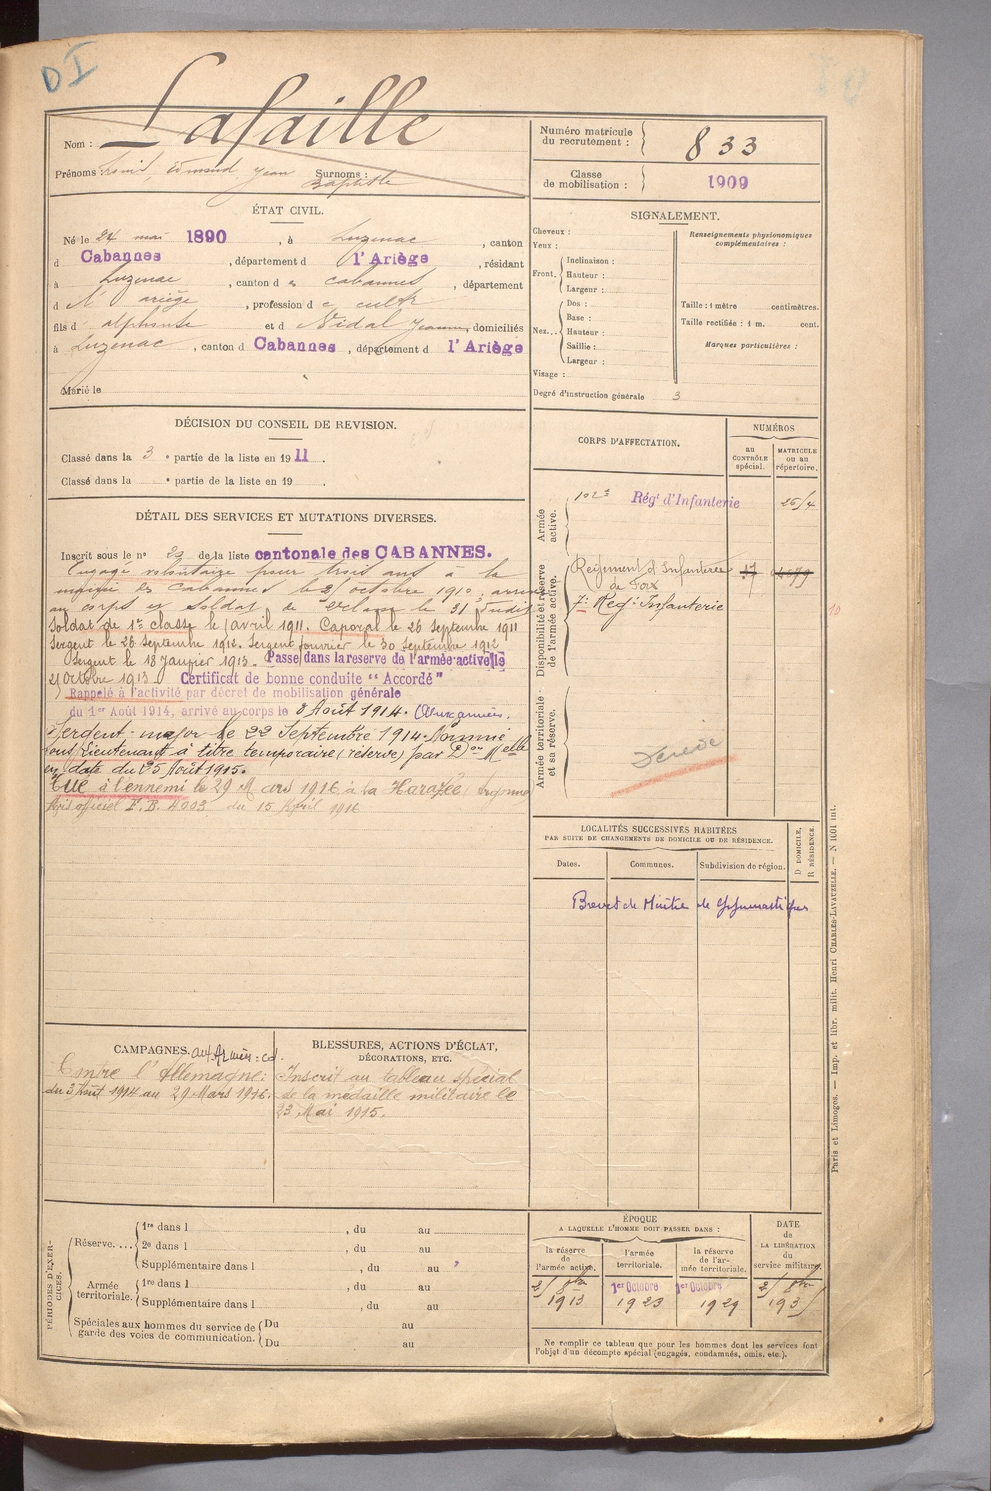 DI
Nom : Lafaille
Prénoms : Louis, Edmond Jean Surnoms :
Baptiste
Numéro matricule du recrutement : 833
Classe de mobilisation : 1909
ÉTAT CIVIL.
Né le 24 mai 1890, à Luzenac, canton
d Cabannes, département d l'Ariège, résidant
à Luzenac, canton d es cabannes, département
d e l' ariège, profession d e cultr
fils d' alphonse et d e Vidal Jeanne, domiciliés
à Luzenac, canton d Cabannes, département d l'Ariège
Marié le
SIGNALEMENT.
Cheveux :
Yeux :
Front. Inclinaison :
Hauteur :
Largeur :
Nez... Dos :
Base :
Hauteur :
Saillie :
Largeur :
Visage :
Renseignements physionomiques complémentaires :
Taille : 1 mètre centimètres.
Taille rectifiée : 1 m. cent.
Marques particulières :
Degré d'instruction générale 3
DÉCISION DU CONSEIL DE REVISION.
Classé dans la 3 e partie de la liste en 1911.
Classé dans la e partie de la liste en 19 .
DÉTAIL DES SERVICES ET MUTATIONS DIVERSES.
Inscrit sous le n° 29 de la liste cantonale des CABANNES.
Engagé volontaire pour trois ans à la
mairie des Cabannes le 21 octobre 1910, arrivé
au corps et soldat de 2e classe le 31 Judit
Soldat de 1re classe le 1 avril 1911. Caporal le 26 Septembre 1911
Sergent le 26 Septembre 1912. Sergent fourrier le 30 Septembre 1912
Sergent le 18 Janvier 1913. Passé dans la reserve de l'armée active le
21 Octobre 1913. Certificat de bonne conduite "Accordé"
Rappelé à l'activité par décret de mobilisation générale
du 1er Août 1914, arrivé au corps le 3 Août 1914. Aux armées.
Serdent-major le 22 Septembre 1914. Nommé
sous Lieutenant à titre temporaire (réserve) par Don Melle
en date du 25 Août 1915.
Tué à l'ennemi le 29 Mars 1916 à La Harazée
Avis officiel F.B. 4003 du 15 Avril 1916
CORPS D'AFFECTATION.
NUMÉROS
AU CONTRÔLE spécial.
MATRICULE ou au répertoire.
Armée active.
Régt d'Infanterie
Disponibilité et réserve de l'armée active.
Régiment d'Infanterie
de Foix
7e Reg. Infanterie
Armée territoriale et sa réserve.
Décédé
LOCALITÉS SUCCESSIVES HABITÉES
PAR SUITE DE CHANGEMENTS DE DOMICILE OU DE RÉSIDENCE.
Dates. Communes. Subdivision de région.
D DOMICILE, R RÉSIDENCE.
Brevet de Maître de Gymnastique
CAMPAGNES. aux Armées : cd.
Contre l'Allemagne :
du 3 Août 1914 au 29 Mars 1916.
BLESSURES, ACTIONS D'ÉCLAT,
DÉCORATIONS, ETC.
Inscrit au tableau spécial
de la médaille militaire le
23 Mai 1915.
PÉRIODES D'EXERCICES.
Réserve.... 1re dans l , du au
2e dans l , du au
Supplémentaire dans l , du au
Armée territoriale. 1re dans l , du au
Supplémentaire dans l , du au
Spéciales aux hommes du service de garde des voies de communication. Du au
Du au
ÉPOQUE
A LAQUELLE L'HOMME DOIT PASSER DANS :
la réserve de l'armée active.
l'armée territoriale.
la réserve de l'armée territoriale.
DATE de LA LIBÉRATION du service militaire.
1er Octobre 1er Octobre
1913 1923 1929
Ne remplir ce tableau que pour les hommes dont les services font
l'objet d'un décompte spécial (engagés, condamnés, omis, etc.).
Paris et Limoges. — Imp. et libr. milit. Henri CHARLES-LAVAUZELLE. — N 1001 int.